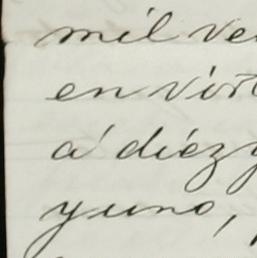 mil ve
en virt
á diéz y
y uno,